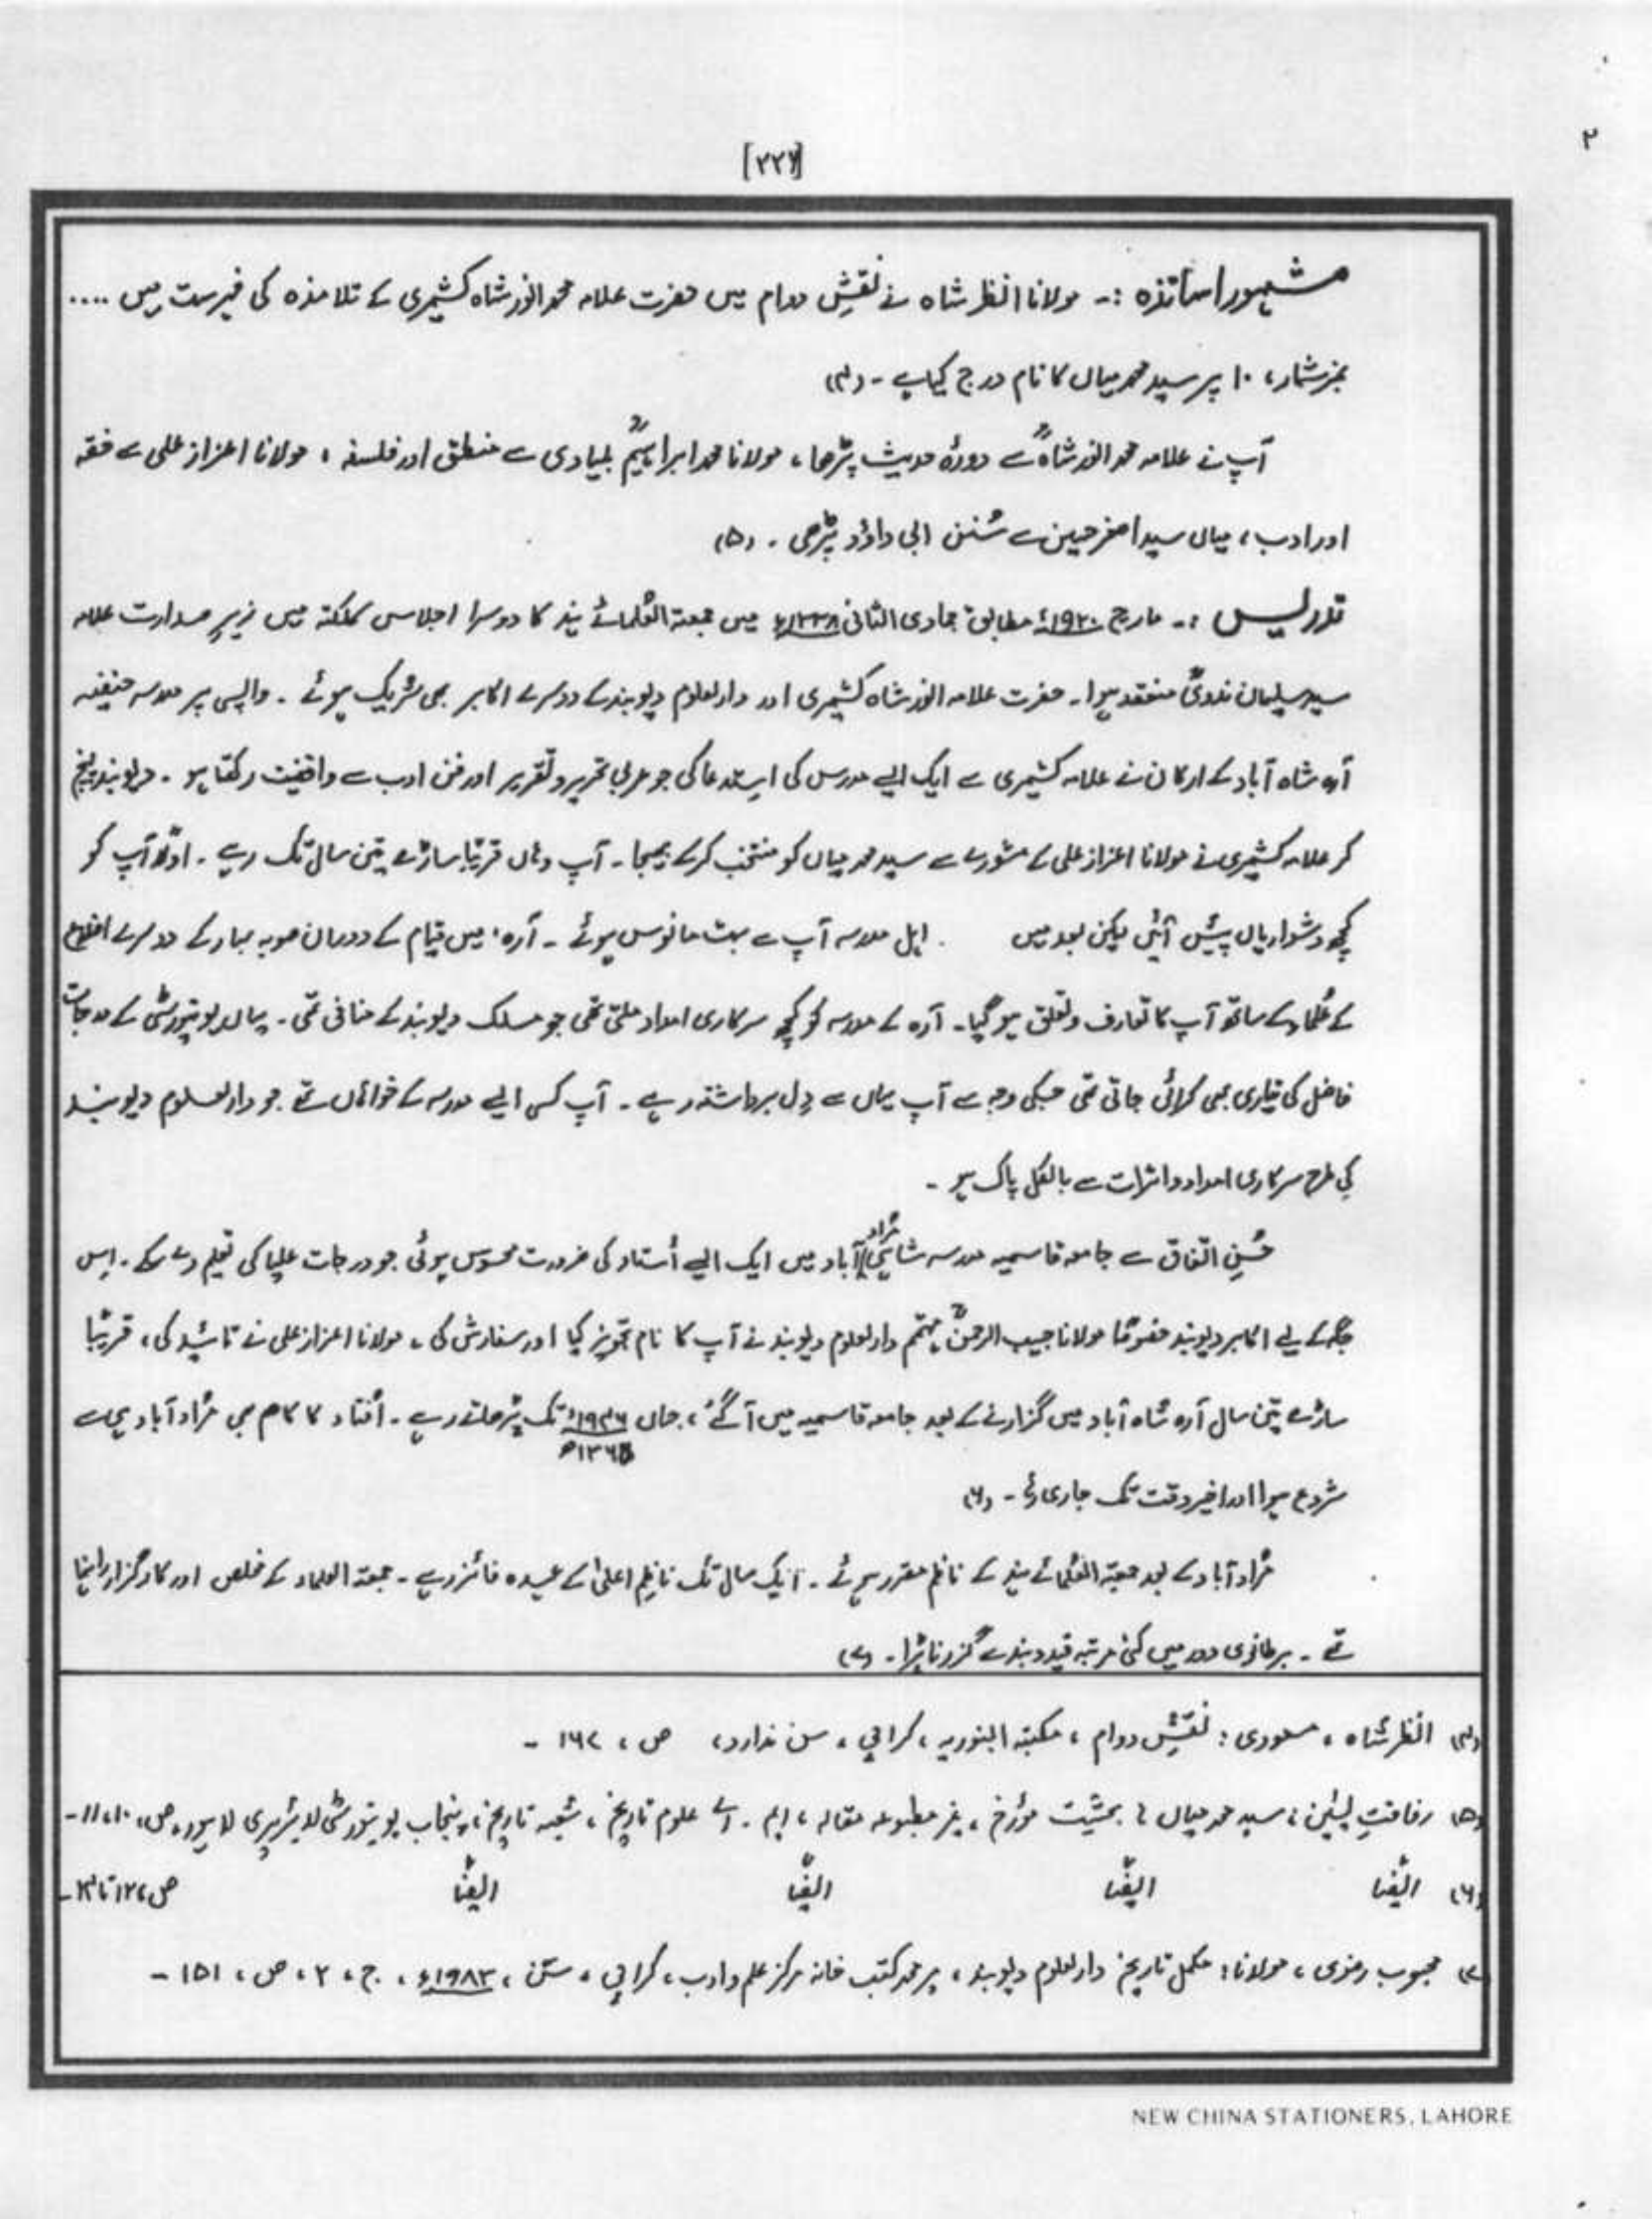 ۲
[۲۲۷]
مشہور اساتذہ :۔ مولانا انظر شاہ نے نقشِ دوام میں حضرت علامہ محمد انور شاہ کشمیری کے تلامذہ کی فہرست میں ....
نمبر شمار، ۱۰ پر سید محمد میاں کا نام درج کیا ہے ۔ (۴)
آپ نے علامہ محمد انور شاہؒ سے دورۂ حدیث پڑھا، مولانا محمد ابراہیمؒ بلیاوی سے منطق اور فلسفہ ، مولانا اعزاز علی سے فقہ
اور ادب ، میاں سید اصغر حسین سے سُنن ابی داؤد پڑھی ۔ (۵)
تدریس :۔ مارچ ۱۹۲۰ء مطابق جمادی الثانی ۱۳۳۸ھ میں جمعیۃ العُلمائے ہند کا دوسرا اجلاس کلکتہ میں زیرِ صدارت علامہ
سید سلیمان ندویؒ منعقد ہوا ۔ حضرت علامہ انور شاہ کشمیری اور دارلعلوم دیوبند کے دوسرے اکابر بھی شریک ہوئے ۔ واپسی پر مدرسہ حنیفیہ
آرہ شاہ آباد کے ارکان نے علامہ کشمیری سے ایک ایسے مدرس کی استدعا کی جو عربی تحریر و تقریر اور فن ادب سے واقفیت رکھتا ہو ۔ دیوبند پہنچ
کر علامہ کشمیری نے مولانا اعزاز علی کے مشورے سے سید محمد میاں کو منتخب کر کے بھیجا ۔ آپ وہاں قریبًا ساڑھے تین سال تک رہے ۔ اولًا آپ کو
کچھ دشواریاں پیش آئیں لیکن بعد میں . اہل مدرسہ آپ سے بہت مانوس ہوئے ۔ آرہ، میں قیام کے دوران صوبہ بہار کے دوسرے اضلاع
کے عُلماء کے ساتھ آپ کا تعارف و تعلق ہو گیا ۔ آرہ کے مدرسہ کو کچھ سرکاری امداد ملتی تھی جو مسلک دیوبند کے منافی تھی ۔ یہاں یونیورسٹی کے درجات
فاضل کی تیاری بھی کرائی جاتی تھی جسکی وجہ سے آپ یہاں سے دِل برداشتہ رہے ۔ آپ کسی ایسے مدرسہ کے خواہاں تھے جو دارلعلوم دیوبند
کی طرح سرکاری امداد و اثرات سے بالکل پاک ہو ۔
حُسنِ اتفاق سے جامعہ قاسمیہ مدرسہ شاہی مُراد آباد میں ایک ایسے اُستاد کی ضرورت محسوس ہوئی جو درجات علیا کی تعلیم دے سکے ۔ اس
جگہ کے لیے اکابر دیوبند خصوصًا مولانا حبیب الرحمنؒ مہتمم دارلعلوم دیوبند نے آپ کا نام تجویز کیا اور سفارش کی ، مولانا اعزاز علی نے تائید کی ، قریبًا
ساڑھے تین سال آرہ شاہ آباد میں گزارنے کے بعد جامعہ قاسمیہ میں آگئے ، جہاں ۱۹۴۶ء تک پڑھاتے رہے ۔ اُفتاء کا کام بھی مُراد آباد ہی سے
۱۳۶۵ھ
شروع ہوا اور اخیر وقت تک جاری رہا ۔ (۶)
مُراد آباد کے بعد جمعیۃ العُلمائے ہند کے ناظم مقرر ہوئے ۔ ایک سال تک ناظم اعلیٰ کے عہدہ فائز رہے ۔ جمعیۃ العلماء کے مخلص اور کارگزار راہنما
تھے ۔ برطانوی دور میں کئی مرتبہ قید و بند سے گزرنا پڑا ۔ (۷)
(۴) انظر شاہ ، مسعودی : نقشِ دوام ، مکتبہ البنوریہ ، کراچی ، سن ندارد ، ص ، ۱۶۷ ۔
(۵) رفاقت : سید محمد میاں : بحثیت مؤرخ ، غیر مطبوعہ مقالہ ، ایم ۔ اے علوم تاریخ ، شعبہ تاریخ ، پنجاب یونیورسٹی لائبریری لاہور ، ص ، ۱۰ ، ۱۱ ۔
(۶) ایضًا ایضًا ایضًا ایضًا ص ، ۱۲ تا ۱۴ ۔
(۷) محبوب رضوی ، مولانا : مکمل تاریخ دارلعلوم دیوبند ، میر محمد کتب خانہ مرکز علم و ادب ، کراچی ، سن ، ۱۹۸۲ء ، ج ، ۲ ، ص ، ۱۵۱ ۔
NEW CHINA STATIONERS, LAHORE